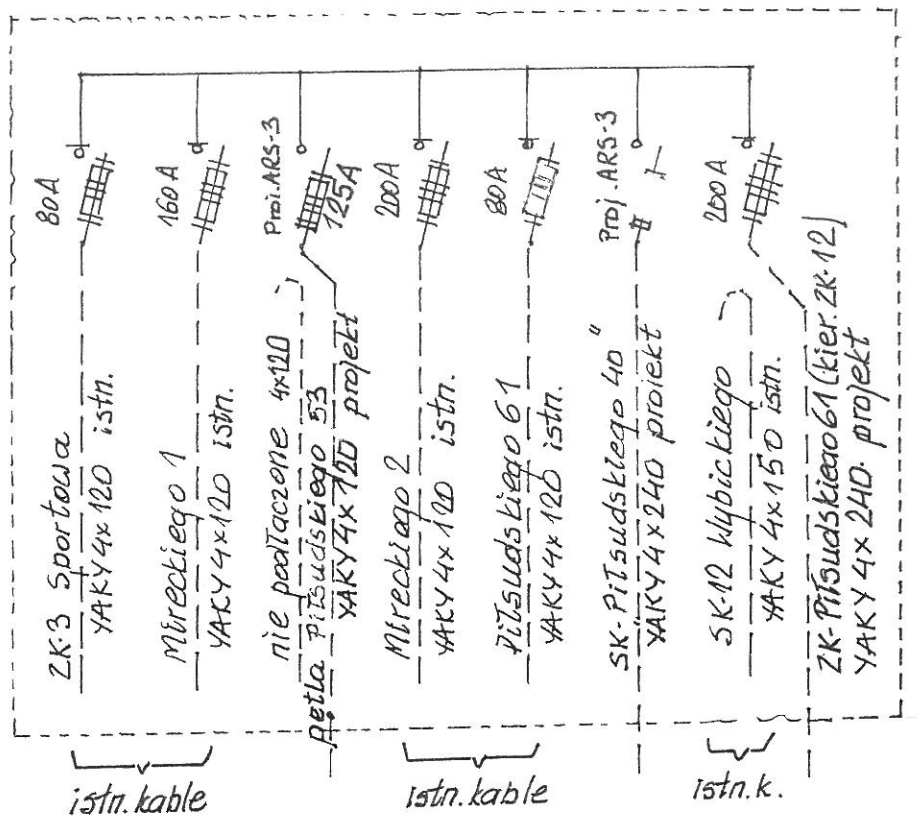 80A
ZK-3 Sportowa
YAKY 4x120 istn.
160A
Mireckiego 1
YAKY 4x120 istn.
Proj. ARS-3
125A
nie podłączone 4x120
pętla Piłsudskiego 53
YAKY 4x120 projekt
200A
Mireckiego 2
YAKY 4x120 istn.
80A
Piłsudskiego 61
YAKY 4x120 istn.
Proj. ARS-3
SK-Piłsudskiego 40"
YAKY 4x240 projekt
200A
SK-12 Wybickiego
YAKY 4x150 istn.
ZK-Piłsudskiego 61 (kier. ZK-12)
YAKY 4x240. projekt
istn. kable
istn. kable
istn. k.